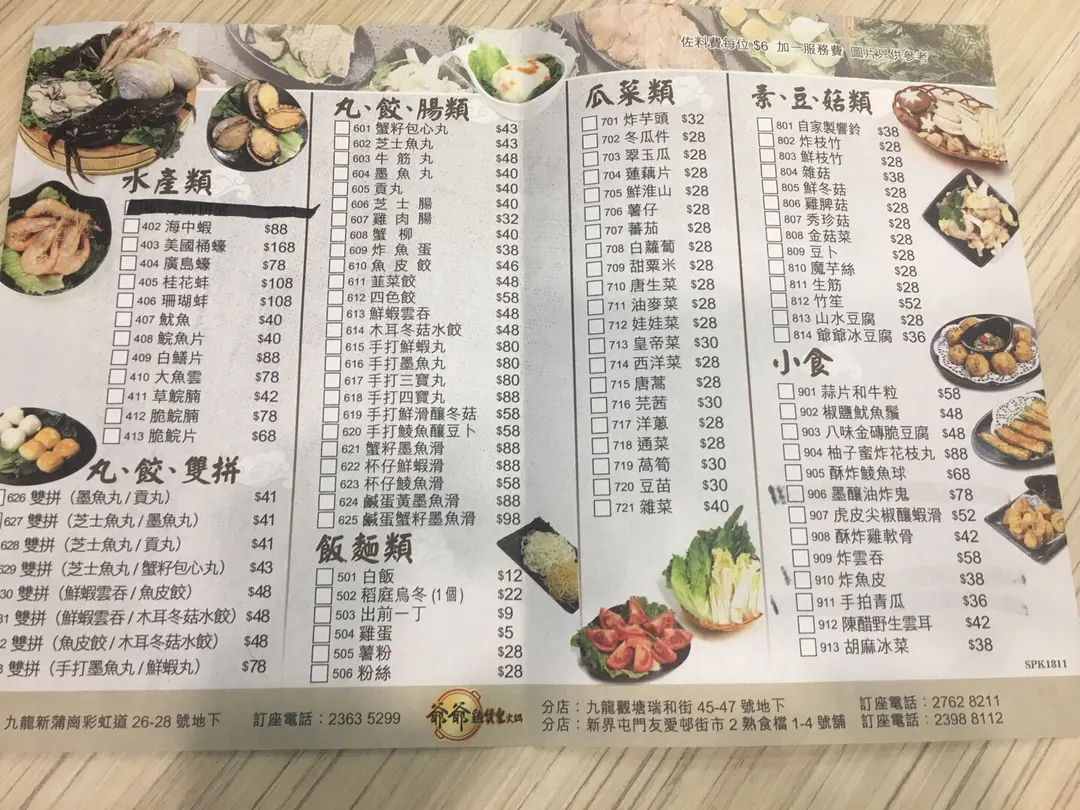 佐料費每位 $6 加一服務費 圖片只供參考
水產類
402 海中蝦 $88
403 美國桶蠔 $168
404 廣島蠔 $78
405 桂花蚌 $108
406 珊瑚蚌 $108
407 魷魚 $40
408 鯇魚片 $40
409 白鱔片 $88
410 大魚雲 $78
411 草鯇腩 $42
412 脆鯇腩 $78
413 脆鯇片 $68
丸、餃、雙拼
626 雙拼（墨魚丸/貢丸） $41
627 雙拼（芝士魚丸/墨魚丸） $41
628 雙拼（芝士魚丸/貢丸） $41
629 雙拼（芝士魚丸/蟹籽包心丸） $43
30 雙拼（鮮蝦雲吞/魚皮餃） $48
31 雙拼（鮮蝦雲吞/木耳冬菇水餃） $48
2 雙拼（魚皮餃/木耳冬菇水餃） $48
雙拼（手打墨魚丸/鮮蝦丸） $78
丸、餃、腸類
601 蟹籽包心丸 $43
602 芝士魚丸 $43
603 牛筋丸 $48
604 墨魚丸 $40
605 貢丸 $40
606 芝士腸 $40
607 雞肉腸 $32
608 蟹柳 $40
609 炸魚蛋 $38
610 魚皮餃 $46
611 韮菜餃 $48
612 四色餃 $58
613 鮮蝦雲吞 $48
614 木耳冬菇水餃 $48
615 手打鮮蝦丸 $80
616 手打墨魚丸 $80
617 手打三寶丸 $80
618 手打四寶丸 $88
619 手打鮮滑釀冬菇 $58
620 手打鯪魚釀豆卜 $58
621 蟹籽墨魚滑 $88
622 杯仔鮮蝦滑 $88
623 杯仔鯪魚滑 $58
624 鹹蛋黃墨魚滑 $88
625 鹹蛋蟹籽墨魚滑 $98
飯麵類
501 白飯 $12
502 稻庭烏冬(1個) $22
503 出前一丁 $9
504 雞蛋 $5
505 薯粉 $28
506 粉絲 $28
瓜菜類
701 炸芋頭 $32
702 冬瓜件 $28
703 翠玉瓜 $28
704 蓮藕片 $28
705 鮮淮山 $28
706 薯仔 $28
707 蕃茄 $28
708 白蘿蔔 $28
709 甜粟米 $28
710 唐生菜 $28
711 油麥菜 $28
712 娃娃菜 $28
713 皇帝菜 $30
714 西洋菜 $28
715 唐蒿 $28
716 芫茜 $30
717 洋蔥 $28
718 通菜 $28
719 萵筍 $30
720 豆苗 $30
721 雜菜 $40
素、豆、菇類
801 自家製響鈴 $38
802 炸枝竹 $28
803 鮮枝竹 $28
804 雜菇 $38
805 鮮冬菇 $28
806 雞脾菇 $28
807 秀珍菇 $28
808 金菇菜 $28
809 豆卜 $28
810 魔芋絲 $28
811 生筋 $28
812 竹笙 $52
813 山水豆腐 $28
814 爺爺冰豆腐 $36
小食
901 蒜片和牛粒 $58
902 椒鹽魷魚鬚 $48
903 八味金磚脆豆腐 $48
904 柚子蜜炸花枝丸 $88
905 酥炸鯪魚球 $68
906 墨釀油炸鬼 $78
907 虎皮尖椒釀蝦滑 $52
908 酥炸雞軟骨 $42
909 炸雲吞 $58
910 炸魚皮 $38
911 手拍青瓜 $36
912 陳醋野生雲耳 $42
913 胡麻冰菜 $38
SPK1811
九龍新蒲崗彩虹道 26-28 號地下 訂座電話：2363 5299
爺爺雞煲皇火鍋
分店：九龍觀塘瑞和街 45-47 號地下 訂座電話：2762 8211
分店：新界屯門友愛邨街市 2 熟食檔 1-4 號舖 訂座電話：2398 8112